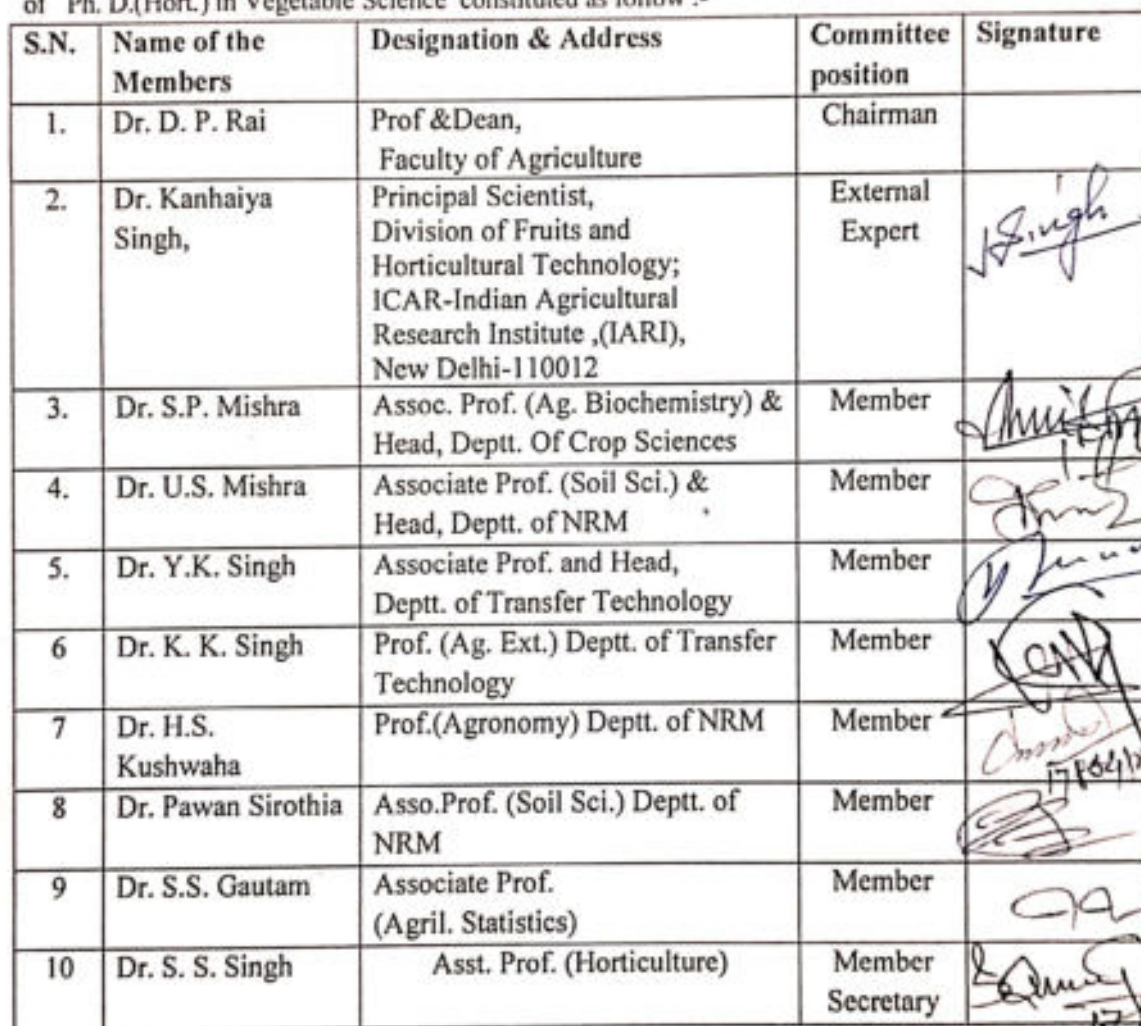 of Ph. D.(Hort.) in Vegetable Science constituted as follow :-
S.N. Name of the Members Designation & Address Committee position Signature
1. Dr. D. P. Rai Prof &Dean, Chairman
Faculty of Agriculture
2. Dr. Kanhaiya Principal Scientist, External
Singh, Division of Fruits and Expert
Horticultural Technology;
ICAR-Indian Agricultural
Research Institute ,(IARI),
New Delhi-110012
Singh
3. Dr. S.P. Mishra Assoc. Prof. (Ag. Biochemistry) & Member
Head, Deptt. Of Crop Sciences
4. Dr. U.S. Mishra Associate Prof. (Soil Sci.) & Member
Head, Deptt. of NRM
5. Dr. Y.K. Singh Associate Prof. and Head, Member
Deptt. of Transfer Technology
6 Dr. K. K. Singh Prof. (Ag. Ext.) Deptt. of Transfer Member
Technology
7 Dr. H.S. Prof.(Agronomy) Deptt. of NRM Member
Kushwaha
8 Dr. Pawan Sirothia Asso.Prof. (Soil Sci.) Deptt. of Member
NRM
9 Dr. S.S. Gautam Associate Prof. Member
(Agril. Statistics)
10 Dr. S. S. Singh Asst. Prof. (Horticulture) Member
Secretary
17